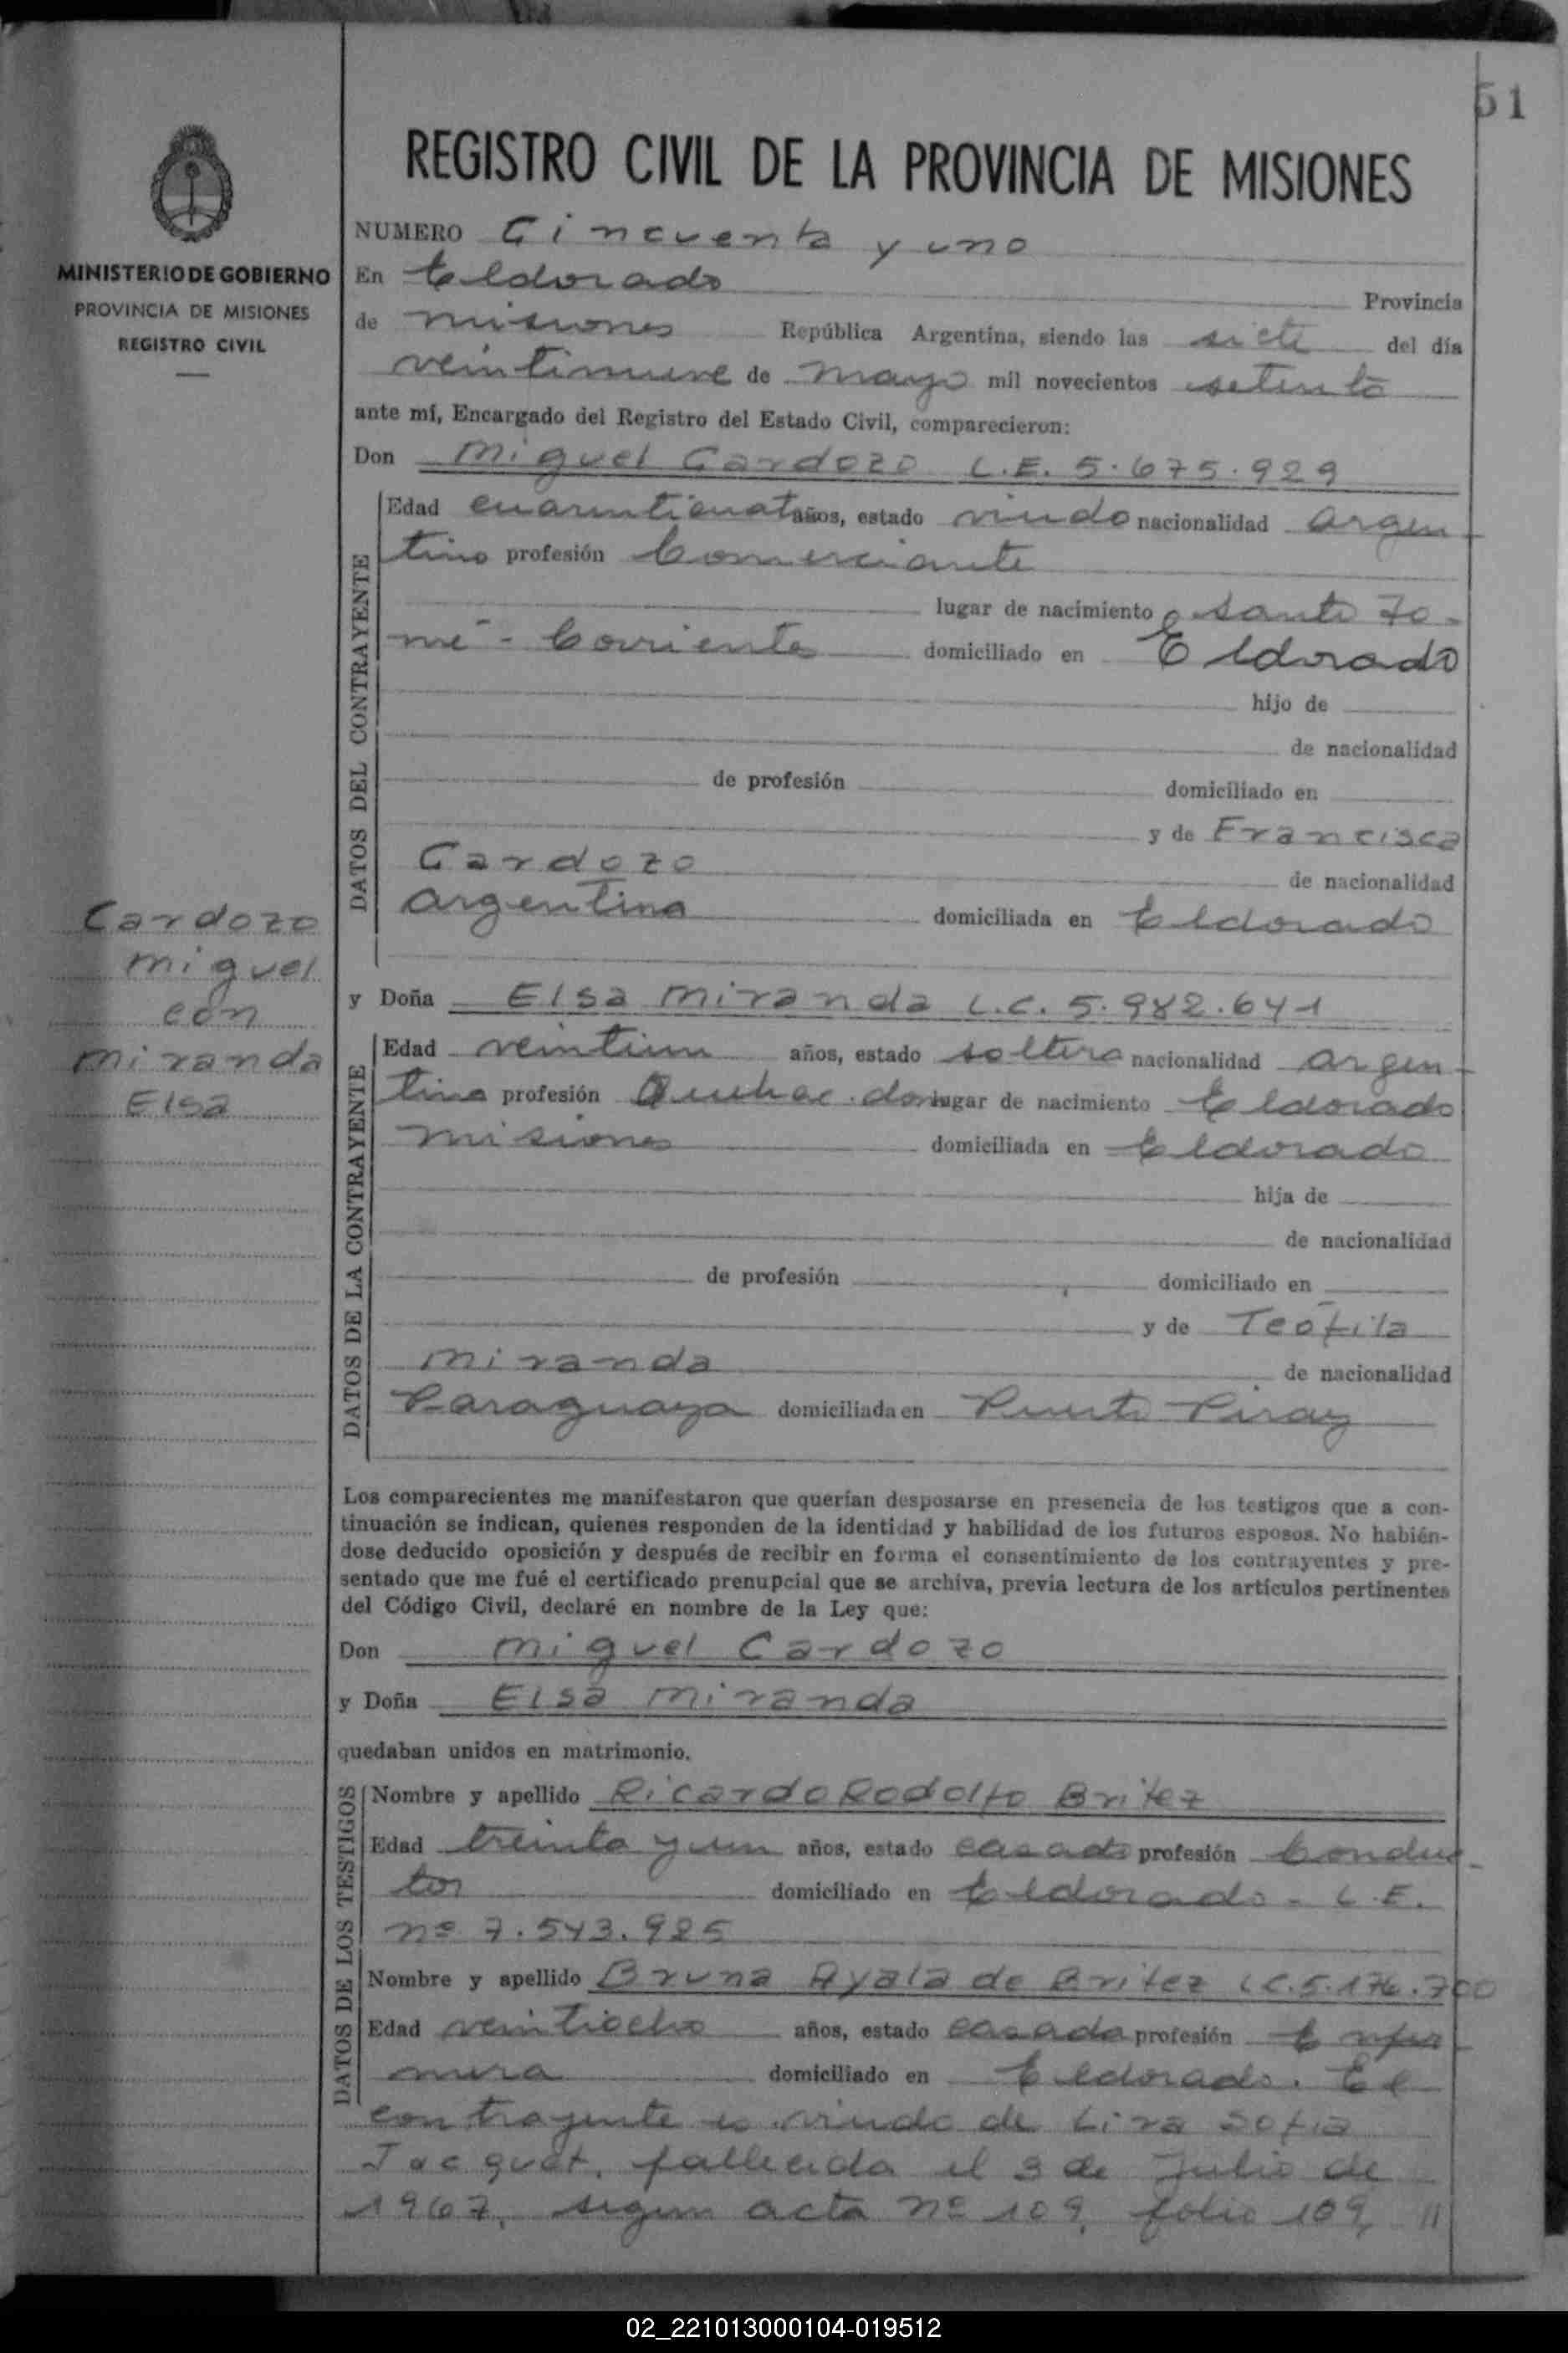 51
REGISTRO CIVIL DE LA PROVINCIA DE MISIONES
MINISTERIO DE GOBIERNO
PROVINCIA DE MISIONES
REGISTRO CIVIL
NUMERO Cincuenta y uno
En Eldorado Provincia
de misiones República Argentina, siendo las siete del día
veintinueve de mayo mil novecientos setenta
ante mí, Encargado del Registro del Estado Civil, comparecieron:
Don Miguel Cardozo L.E. 5.675.929
DATOS DEL CONTRAYENTE
Edad años, estado viudo nacionalidad argen-
tino profesión Comerciante
lugar de nacimiento Santo To-
mé - Corrientes domiciliado en Eldorado
hijo de
de nacionalidad
de profesión domiciliado en
y de Francisca
Cardozo de nacionalidad
argentina domiciliada en Eldorado
Cardozo
Miguel
con
Miranda
Elsa
y Doña Elsa Miranda L.C. 5.982.641
DATOS DE LA CONTRAYENTE
Edad veintiun años, estado soltera nacionalidad argen-
tina profesión Quehac. dom lugar de nacimiento Eldorado
misiones domiciliada en Eldorado
hija de
de nacionalidad
de profesión domiciliado en
y de Teófila
Miranda de nacionalidad
Paraguaya domiciliada en Puerto Piray
Los comparecientes me manifestaron que querían desposarse en presencia de los testigos que a con-
tinuación se indican, quienes responden de la identidad y habilidad de los futuros esposos. No habién-
dose deducido oposición y después de recibir en forma el consentimiento de los contrayentes y pre-
sentado que me fué el certificado prenupcial que se archiva, previa lectura de los artículos pertinentes
del Código Civil, declaré en nombre de la Ley que:
Don Miguel Cardozo
y Doña Elsa Miranda
quedaban unidos en matrimonio.
DATOS DE LOS TESTIGOS
Nombre y apellido Ricardo Rodolfo Britez
Edad treinta y un años, estado casado profesión Conduc-
tor domiciliado en Eldorado - L.E.
nº 7.543.925
Nombre y apellido Bruna Ayala de Britez L.C. 5.176.700
Edad veintiocho años, estado casada profesión Enfer-
mera domiciliado en Eldorado. El
contrayente es viudo de Lira Sofia
Jacquet, fallecida el 3 de Julio de
1967, segun acta nº 109, folio 109, //
02_221013000104-019512